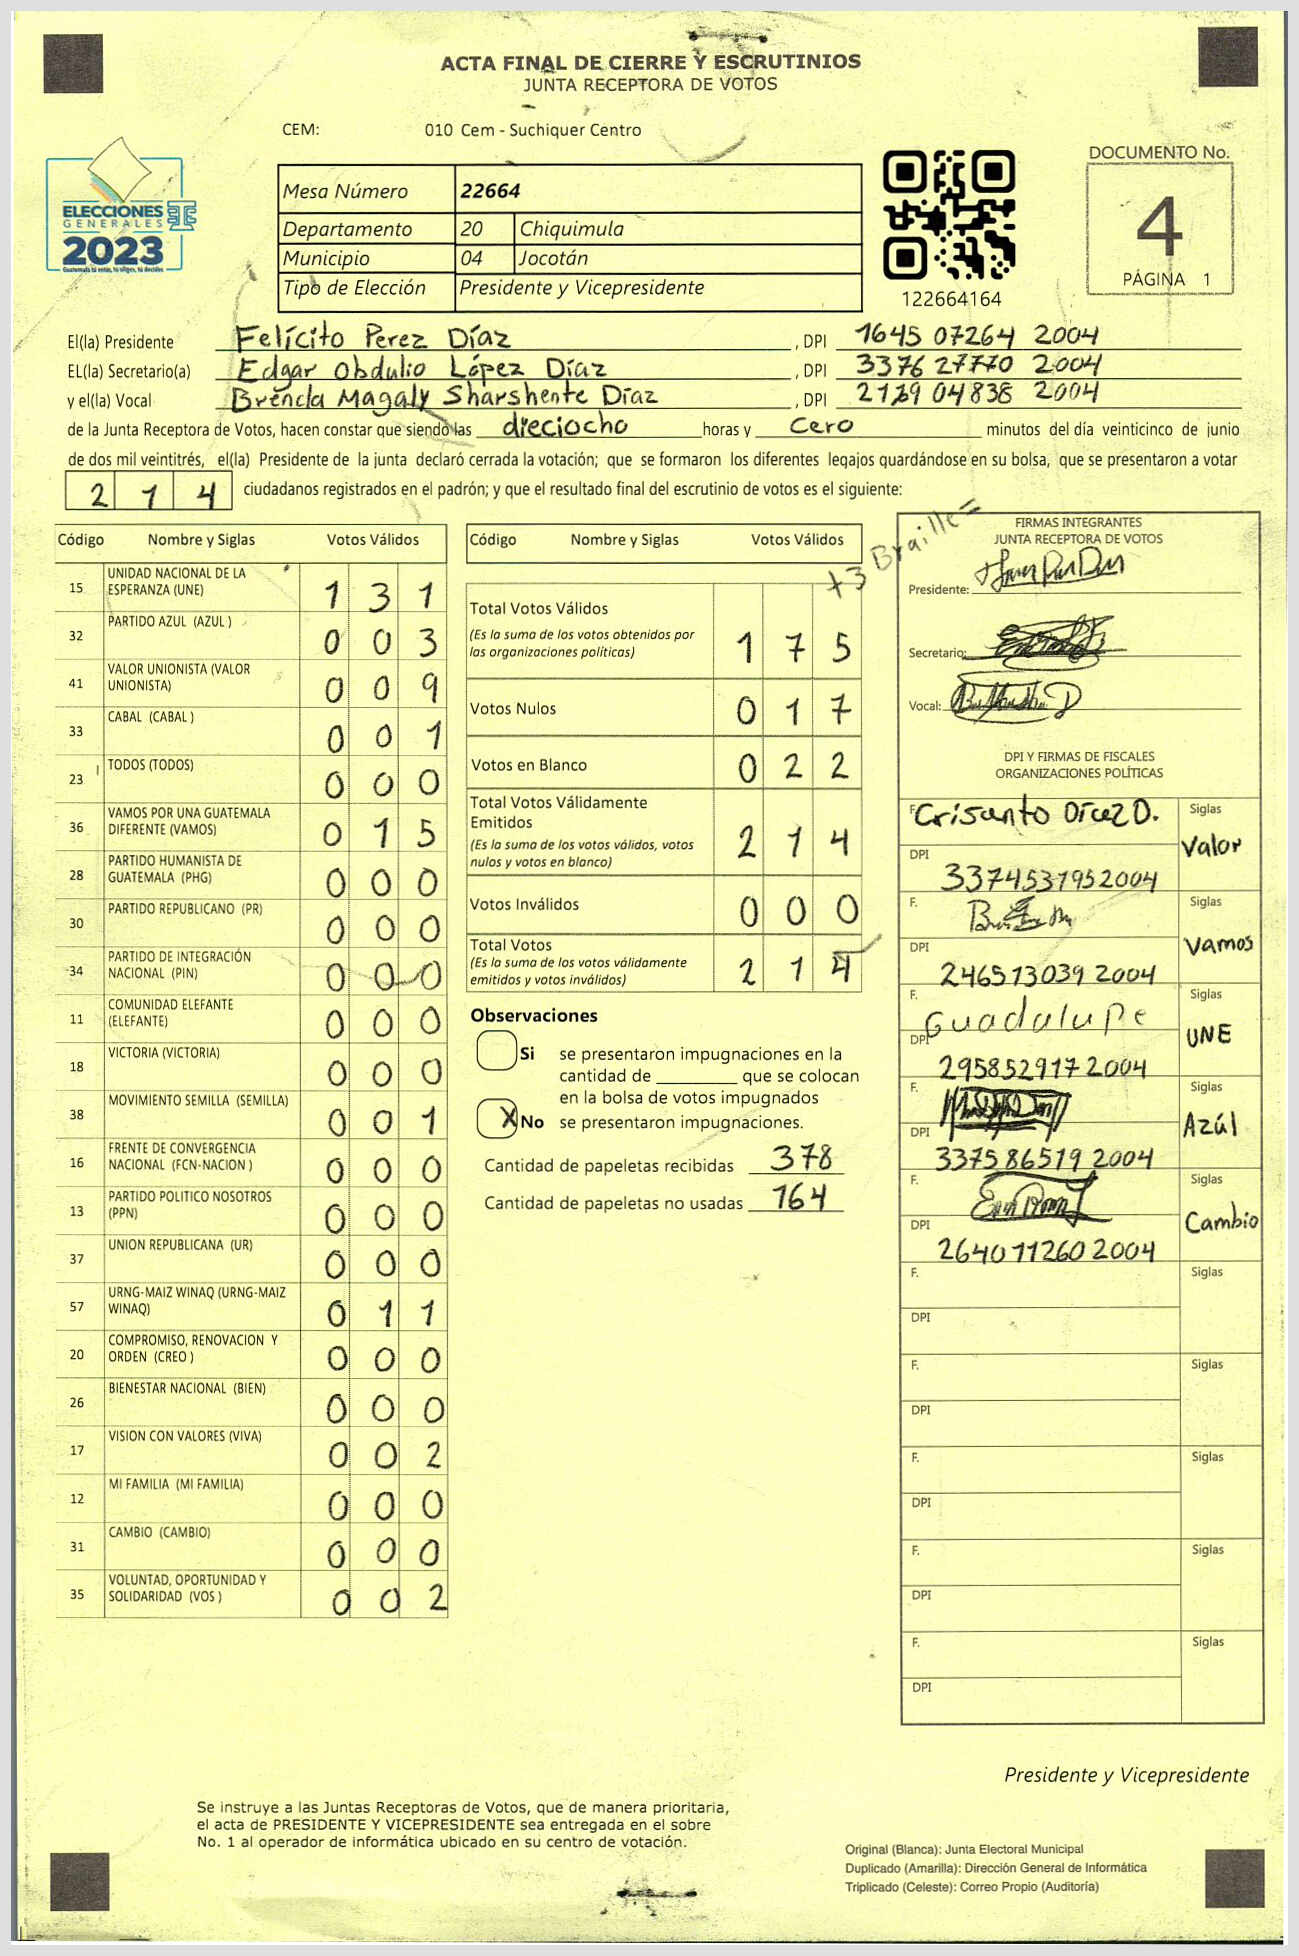 ACTA FINAL DE CIERRE Y ESCRUTINIOS
JUNTA RECEPTORA DE VOTOS
CEM: 010 Cem - Suchiquer Centro
ELECCIONES
GENERALES
2023
Guatemala tú votas, tú eliges, tú decides
Mesa Número 22664
Departamento 20 Chiquimula
Municipio 04 Jocotán
Tipo de Elección Presidente y Vicepresidente
122664164
DOCUMENTO No.
4
PÁGINA 1
El(la) Presidente Felícito Perez Díaz , DPI 1645 07264 2004
EL(la) Secretario(a) Edgar Obdulio López Díaz , DPI 3376 27770 2004
y el(la) Vocal Brenda Magaly Sharshente Díaz , DPI 2179 04838 2004
de la Junta Receptora de Votos, hacen constar que siendo las dieciocho horas y Cero minutos del día veinticinco de junio
de dos mil veintitrés, el(la) Presidente de la junta declaró cerrada la votación; que se formaron los diferentes legajos guardándose en su bolsa, que se presentaron a votar
2 1 4 ciudadanos registrados en el padrón; y que el resultado final del escrutinio de votos es el siguiente:
Código Nombre y Siglas Votos Válidos
15 UNIDAD NACIONAL DE LA ESPERANZA (UNE) 1 3 1
32 PARTIDO AZUL (AZUL ) 0 0 3
41 VALOR UNIONISTA (VALOR UNIONISTA) 0 0 9
33 CABAL (CABAL ) 0 0 1
23 TODOS (TODOS) 0 0 0
36 VAMOS POR UNA GUATEMALA DIFERENTE (VAMOS) 0 1 5
28 PARTIDO HUMANISTA DE GUATEMALA (PHG) 0 0 0
30 PARTIDO REPUBLICANO (PR) 0 0 0
34 PARTIDO DE INTEGRACIÓN NACIONAL (PIN) 0 0 0
11 COMUNIDAD ELEFANTE (ELEFANTE) 0 0 0
18 VICTORIA (VICTORIA) 0 0 0
38 MOVIMIENTO SEMILLA (SEMILLA) 0 0 1
16 FRENTE DE CONVERGENCIA NACIONAL (FCN-NACION ) 0 0 0
13 PARTIDO POLITICO NOSOTROS (PPN) 0 0 0
37 UNION REPUBLICANA (UR) 0 0 0
57 URNG-MAIZ WINAQ (URNG-MAIZ WINAQ) 0 1 1
20 COMPROMISO, RENOVACION Y ORDEN (CREO ) 0 0 0
26 BIENESTAR NACIONAL (BIEN) 0 0 0
17 VISION CON VALORES (VIVA) 0 0 2
12 MI FAMILIA (MI FAMILIA) 0 0 0
31 CAMBIO (CAMBIO) 0 0 0
35 VOLUNTAD, OPORTUNIDAD Y SOLIDARIDAD (VOS ) 0 0 2
Código Nombre y Siglas Votos Válidos
+3 Braille=
Total Votos Válidos
(Es la suma de los votos obtenidos por
las organizaciones políticas) 1 7 5
Votos Nulos 0 1 7
Votos en Blanco 0 2 2
Total Votos Válidamente
Emitidos
(Es la suma de los votos válidos, votos
nulos y votos en blanco) 2 1 4
Votos Inválidos 0 0 0
Total Votos
(Es la suma de los votos válidamente
emitidos y votos inválidos) 2 1 4
Observaciones
Si se presentaron impugnaciones en la
cantidad de ________ que se colocan
en la bolsa de votos impugnados
X No se presentaron impugnaciones.
Cantidad de papeletas recibidas 378
Cantidad de papeletas no usadas 164
FIRMAS INTEGRANTES
JUNTA RECEPTORA DE VOTOS
Presidente:
Secretario:
Vocal:
DPI Y FIRMAS DE FISCALES
ORGANIZACIONES POLÍTICAS
F. Crisanto Díaz D. Siglas
Valor
DPI 3374531952004
F. Siglas
Vamos
DPI 246513039 2004
F. Guadalupe Siglas
UNE
DPI 295852917 2004
F. Siglas
Azúl
DPI 337586519 2004
F. Siglas
Cambio
DPI 264011260 2004
F. Siglas
DPI
F. Siglas
DPI
F. Siglas
DPI
F. Siglas
DPI
F. Siglas
DPI
Presidente y Vicepresidente
Se instruye a las Juntas Receptoras de Votos, que de manera prioritaria,
el acta de PRESIDENTE Y VICEPRESIDENTE sea entregada en el sobre
No. 1 al operador de informática ubicado en su centro de votación.
Original (Blanca): Junta Electoral Municipal
Duplicado (Amarilla): Dirección General de Informática
Triplicado (Celeste): Correo Propio (Auditoría)